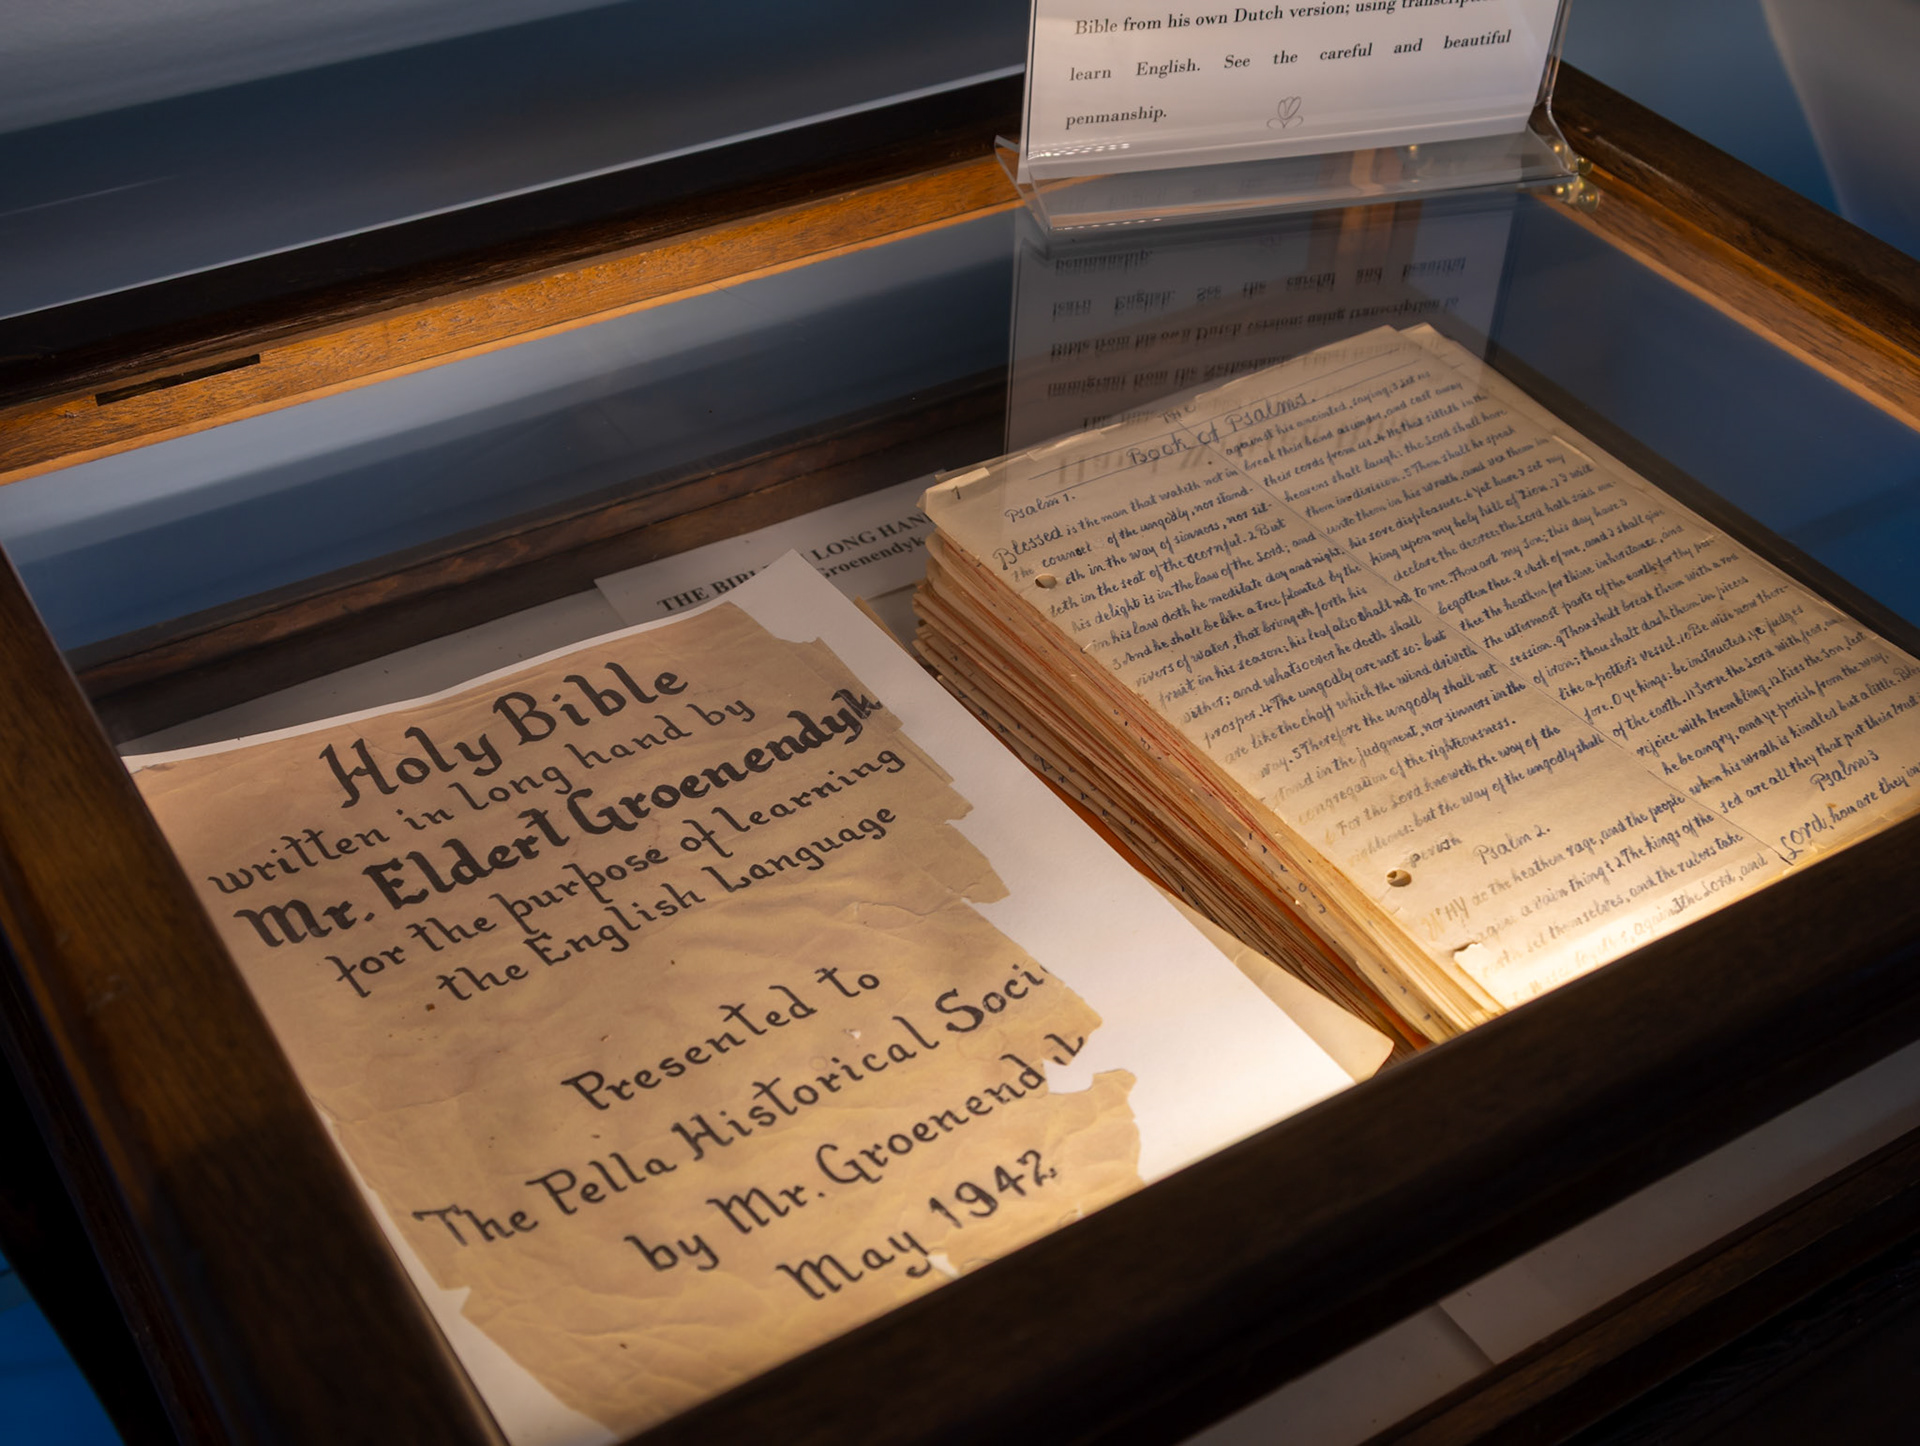 Bible from his own Dutch version; using
learn English. See the careful and beautiful
penmanship.
THE BIB LONG HAN
Groenendyk
Holy Bible
written in long hand by
Mr. Eldert Groenendyk
for the purpose of learning
the English Language
Presented to
The Pella Historical Soci
by Mr. Groenend
May 1942
1
Book of Psalms.
Psalm 1.
Blessed is the man that walketh not in
the counsel of the ungodly, nor stand-
eth in the way of sinners, nor sit-
teth in the seat of the scornful. 2 But
his delight is in the law of the Lord; and
in his law doth he meditate day and night.
3 And he shall be like a tree planted by the
rivers of water, that bringeth forth his
fruit in his season; his leaf also shall not
wither; and whatsoever he doeth shall
prosper. 4 The ungodly are not so: but
are like the chaff which the wind driveth
way. 5 Therefore the ungodly shall not
stand in the judgment, nor sinners in the
congregation of the righteousness.
6 For the Lord knoweth the way of the
righteous: but the way of the ungodly shall
perish
Psalm 2.
WHY do the heathen rage, and the people
imagine a vain thing? 2 The kings of the
earth set themselves, and the rulers take
against the Lord, and
against his anointed, saying, 3 Let us
break their bands asunder, and cast away
their cords from us. 4 He that sitteth in the
heavens shall laugh: the Lord shall have
them in division. 5 Then shall he speak
unto them in his wrath, and vex them in
his sore displeasure. 6 Yet have I set my
king upon my holy hill of Zion. 7 I will
declare the decree: the Lord hath said un-
to me. Thou art my Son; this day have I
begotten thee. 8 Ask of me, and I shall give
thee the heathen for thine inheritance, and
the uttermost parts of the earth for thy pos-
session. 9 Thou shalt break them with a rod
of iron; thou shalt dash them in pieces
like a potter's vessel. 10 Be wise now there-
fore. O ye kings: be instructed, ye judges
of the earth. 11 Serve the Lord with fear, and
rejoice with trembling. 12 Kiss the Son, lest
he be angry, and ye perish from the way,
when his wrath is kindled but a little. Bles-
sed are all they that put their trust
Psalm 3
LORD, how are they in